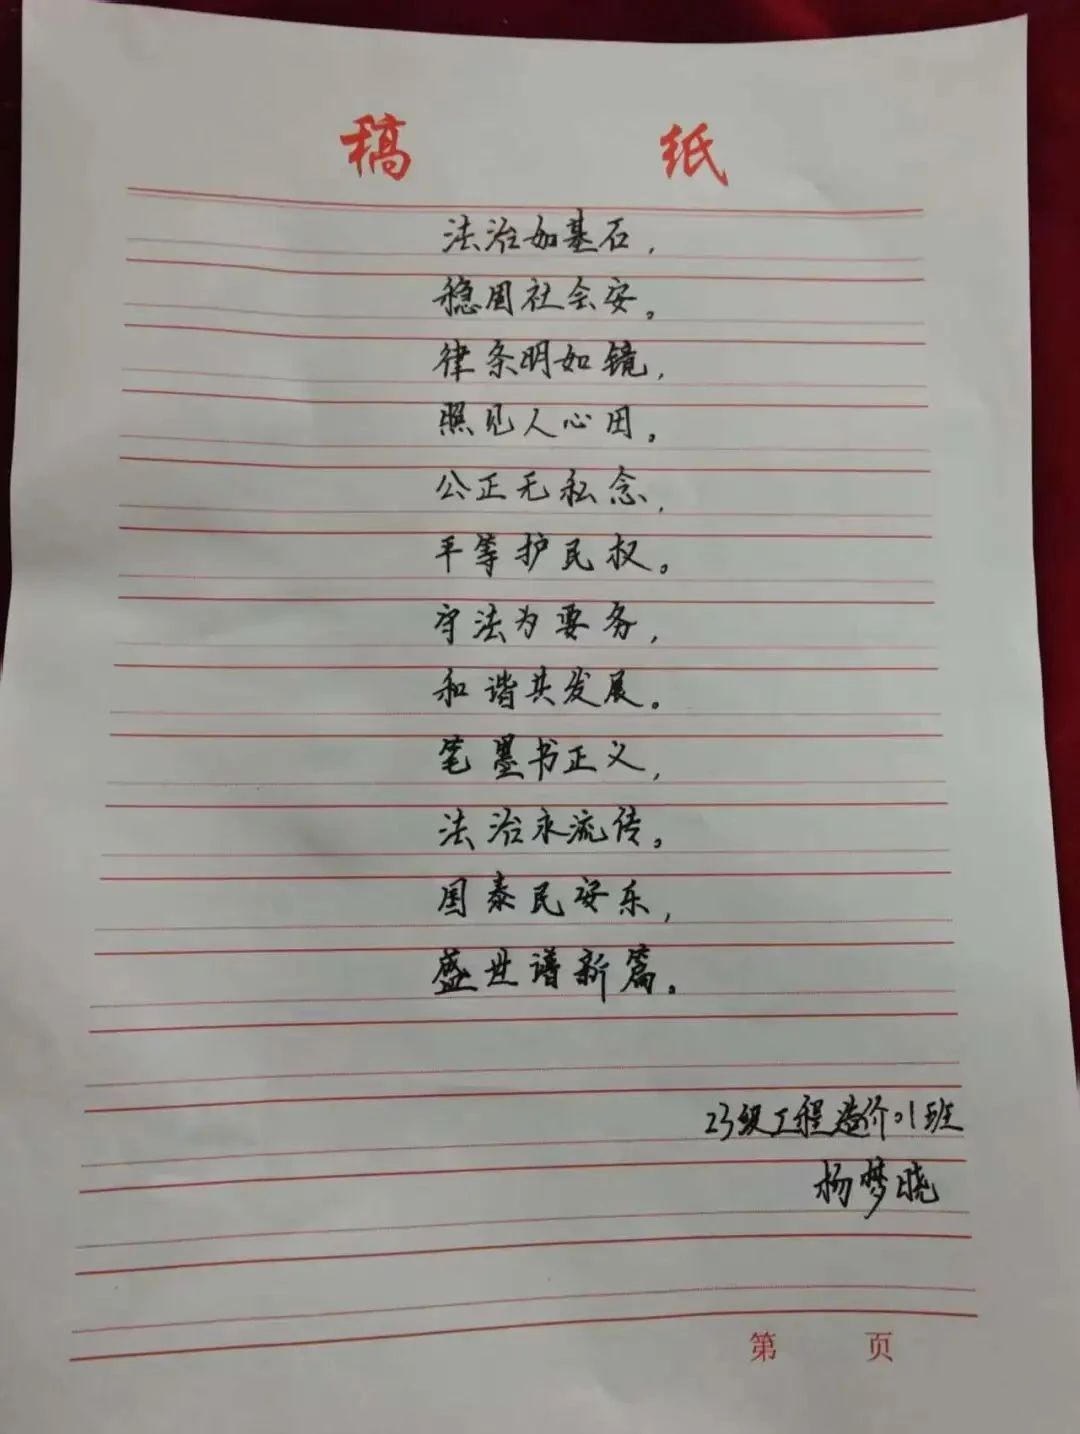 稿 纸
法治如基石，
稳固社会安。
律条明如镜，
照见人心田。
公正无私念，
平等护民权。
守法为要务，
和谐共发展。
笔墨书正义，
法治永流传。
国泰民安乐，
盛世谱新篇。
23级工程造价01班
杨梦晓
第 页